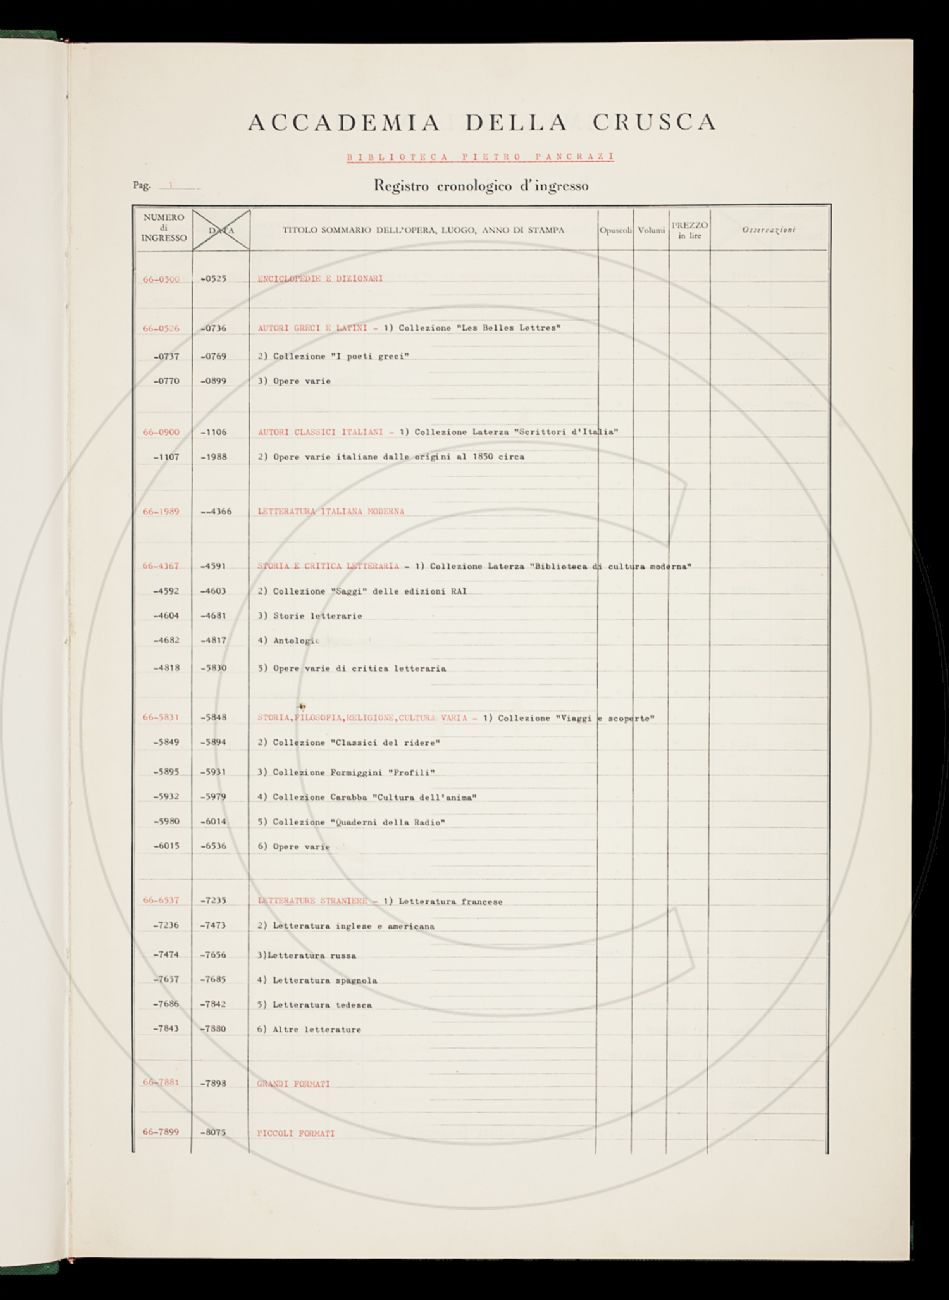 ACCADEMIA DELLA CRUSCA
BIBLIOTECA PIETRO PANCRAZI
Pag. 1 Registro cronologico d'ingresso
NUMERO di INGRESSO DATA TITOLO SOMMARIO DELL'OPERA, LUOGO, ANNO DI STAMPA Opuscoli Volumi PREZZO in lire Osservazioni
66-0500 -0525 ENCICLOPEDIE E DIZIONARI
66-0526 -0736 AUTORI GRECI E LATINI - 1) Collezione "Les Belles Lettres"
-0737 -0769 2) Collezione "I poeti greci"
-0770 -0899 3) Opere varie
66-0900 -1106 AUTORI CLASSICI ITALIANI - 1) Collezione Laterza "Scrittori d'Italia"
-1107 -1988 2) Opere varie italiane dalle origini al 1850 circa
66-1989 --4366 LETTERATURA ITALIANA MODERNA
66-4367 -4591 STORIA E CRITICA LETTERARIA - 1) Collezione Laterza "Biblioteca di cultura moderna"
-4592 -4603 2) Collezione "Saggi" delle edizioni RAI
-4604 -4681 3) Storie letterarie
-4682 -4817 4) Antologie
-4818 -5830 5) Opere varie di critica letteraria
66-5831 -5848 STORIA,FILOSOFIA,RELIGIONE,CULTURA VARIA - 1) Collezione "Viaggi e scoperte"
-5849 -5894 2) Collezione "Classici del ridere"
-5895 -5931 3) Collezione Formiggini "Profili"
-5932 -5979 4) Collezione Carabba "Cultura dell'anima"
-5980 -6014 5) Collezione "Quaderni della Radio"
-6015 -6536 6) Opere varie
66-6537 -7235 LETTERATURE STRANIERE - 1) Letteratura francese
-7236 -7473 2) Letteratura inglese e americana
-7474 -7656 3)Letteratura russa
-7657 -7685 4) Letteratura spagnola
-7686 -7842 5) Letteratura tedesca
-7843 -7880 6) Altre letterature
66-7881 -7898 GRANDI FORMATI
66-7899 -8075 PICCOLI FORMATI